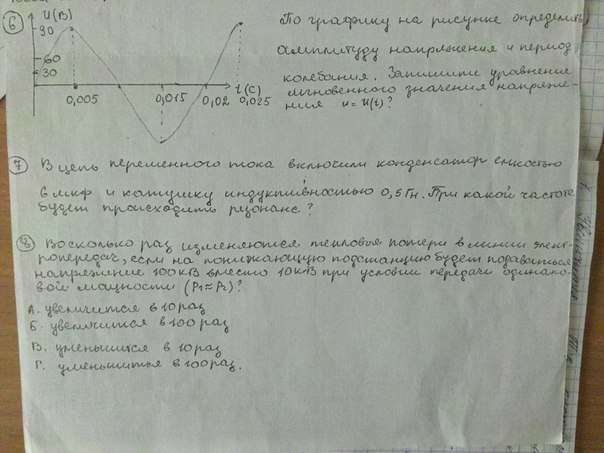 6
U(В)
90
60
30
0,005
0,015
0,02
0,025
t(С)
По графику на рисунке определить
амплитуду напряжения и период
колебания. Запишите уравнение
мгновенного значения напряже-
ния u = U(t)?
7 В цепь переменного тока включили конденсатор емкостью
6 мкф и катушку индуктивностью 0,5 Гн. При какой частоте
будет происходить резонанс?
8 Восколько раз изменяются тепловые потери в линии элект-
ропередач, если на понижающую подстанцию будет подаваться
напряжение 100 кВ вместо 10 кВ при условии передачи одинако-
вой мощности (P1≈P2)?
А. увеличится в 10 раз
Б. увеличится в 100 раз
В. уменьшится в 10 раз
Г. уменьшится в 100 раз.